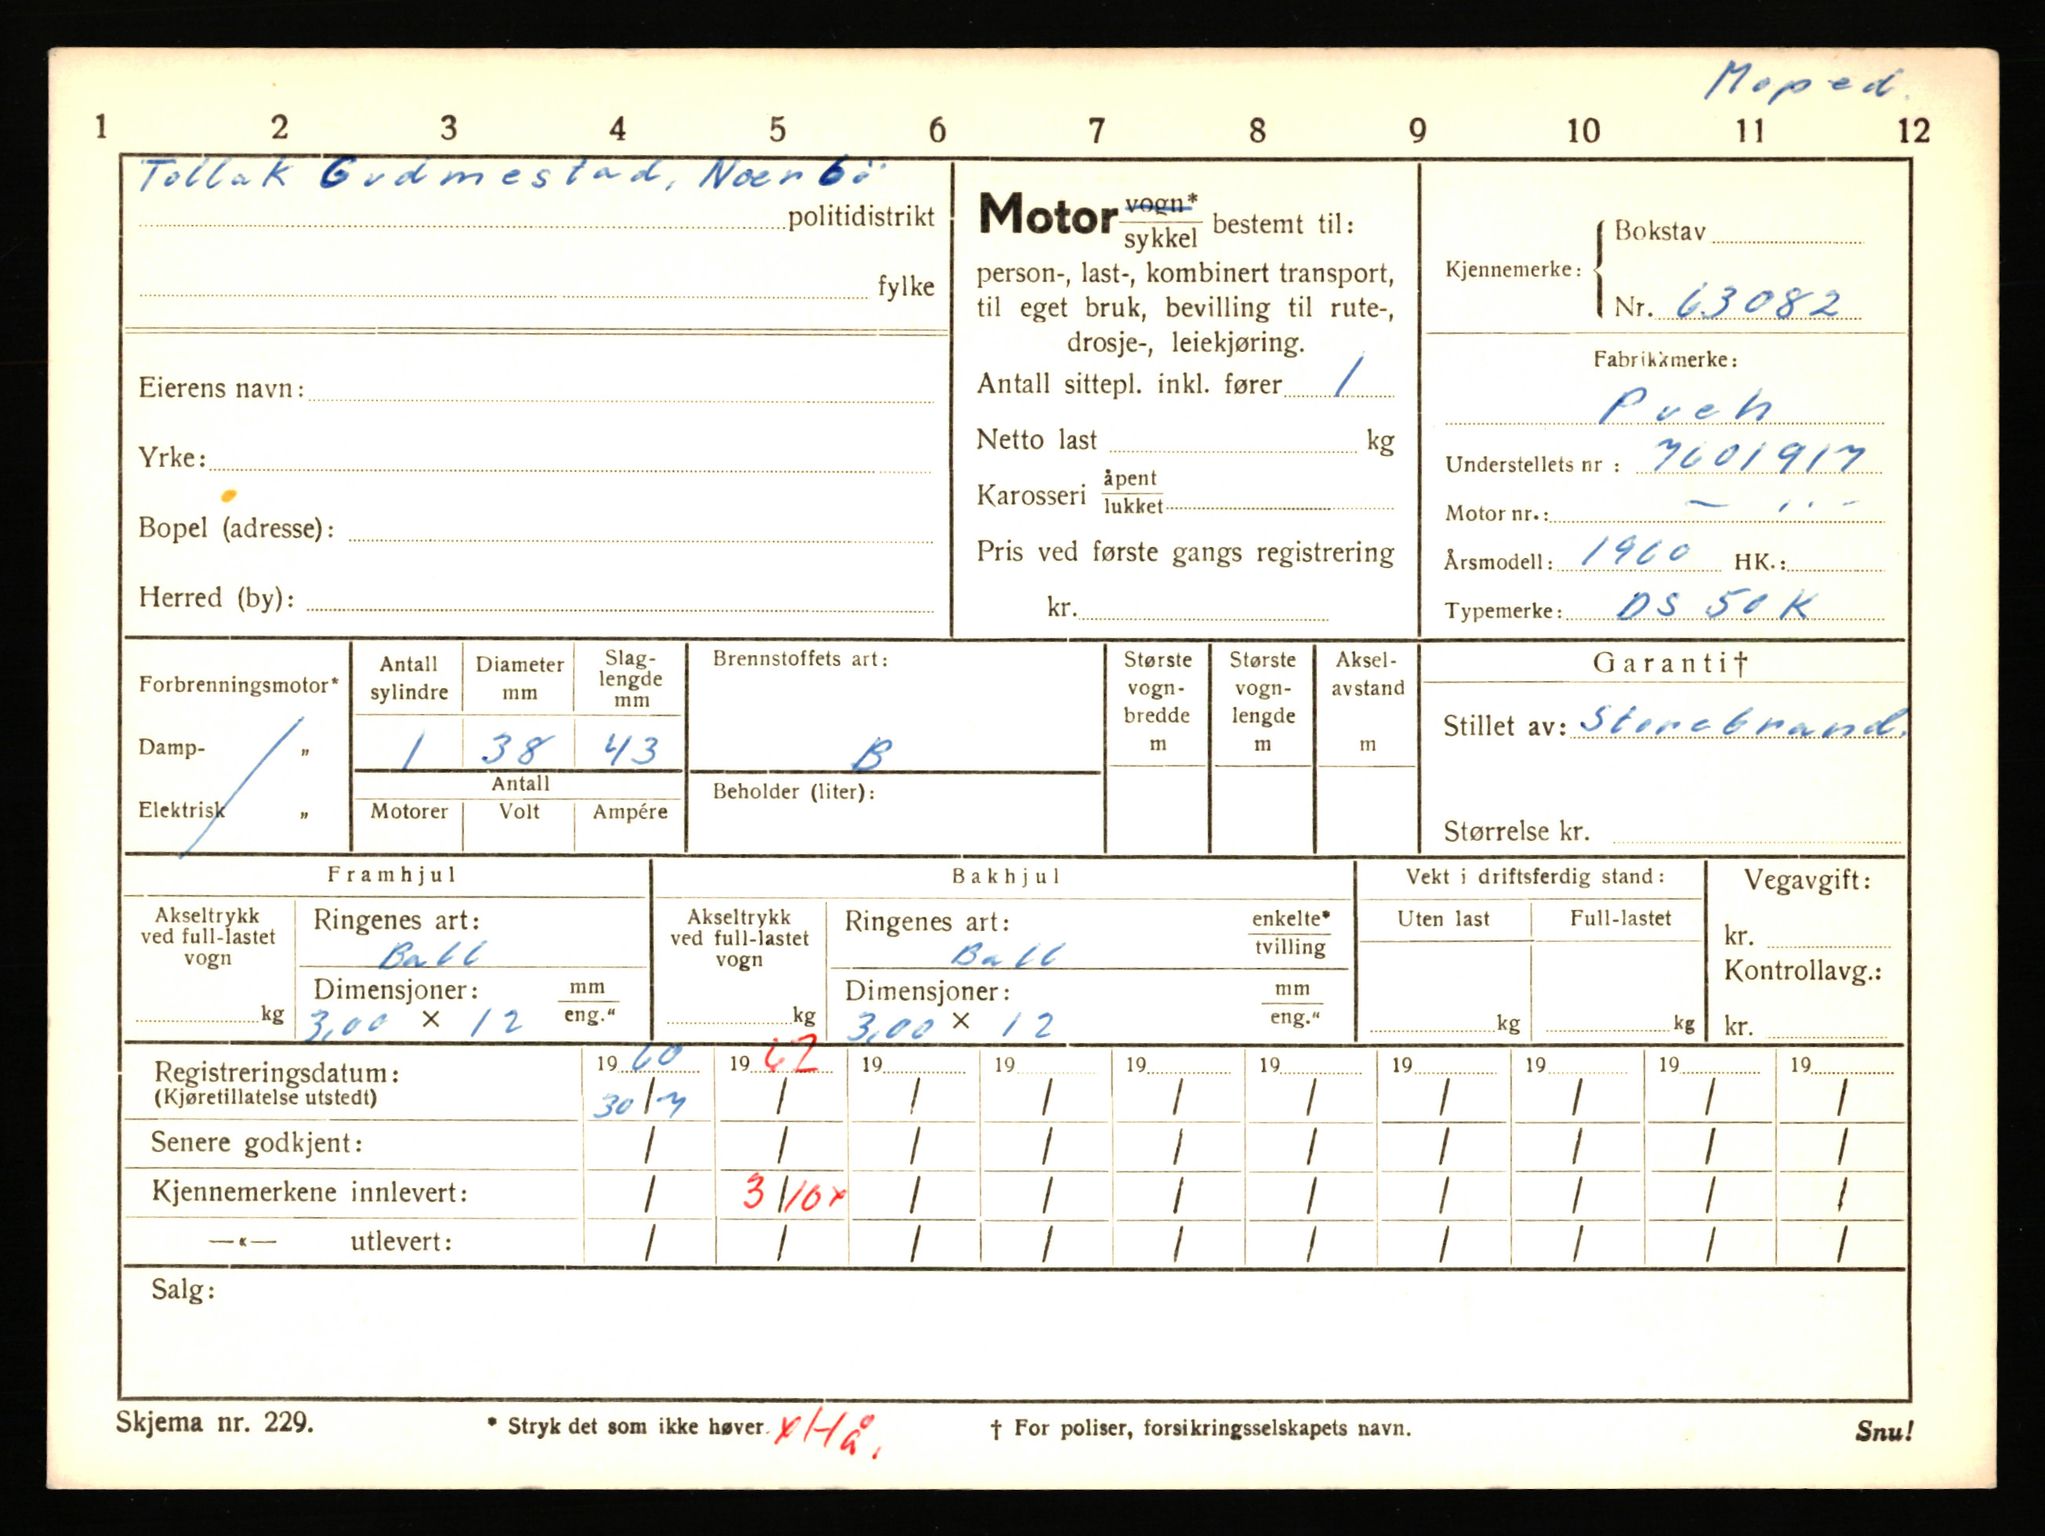 Moped.
1 2 3 4 5 6 7 8 9 10 11 12
Tollak Gudmestad, Nærbö
politidistrikt
fylke
Eierens navn:
Yrke:
Bopel (adresse):
Herred (by):
Motor vogn* / sykkel bestemt til:
person-, last-, kombinert transport,
til eget bruk, bevilling til rute-,
drosje-, leiekjøring.
Antall sittepl. inkl. fører 1
Netto last kg
Karosseri åpent / lukket
Pris ved første gangs registrering
kr.
Kjennemerke: Bokstav
Nr. 63082
Fabrikkmerke:
Puch
Understellets nr : 7601917
Motor nr.: — „ —
Årsmodell: 1960 HK.:
Typemerke: DS 50 K
Forbrenningsmotor*
Damp- „
Elektrisk „
Antall sylindre
Diameter mm
Slag-lengde mm
1 38 43
Antall
Motorer Volt Ampére
Brennstoffets art:
B
Beholder (liter):
Største vogn-bredde m
Største vogn-lengde m
Aksel-avstand m
Garanti†
Stillet av: Storebrand.
Størrelse kr.
Framhjul
Akseltrykk ved full-lastet vogn
kg
Ringenes art:
Ball
Dimensjoner: mm / eng."
3,00 × 12
Bakhjul
Akseltrykk ved full-lastet vogn
kg
Ringenes art: enkelte* / tvilling
Ball
Dimensjoner: mm / eng."
3,00 × 12
Vekt i driftsferdig stand:
Uten last Full-lastet
kg kg
Vegavgift:
kr.
Kontrollavg.:
kr.
Registreringsdatum: 19 60 19 62 19 19 19 19 19 19 19 19
(Kjøretillatelse utstedt) 30/7 / / / / / / / / /
Senere godkjent: / / / / / / / / / /
Kjennemerkene innlevert: / 3/10x / / / / / / / /
—«— utlevert: / / / / / / / / / /
Salg:
Skjema nr. 229. * Stryk det som ikke høver. x Hå. † For poliser, forsikringsselskapets navn. Snu!